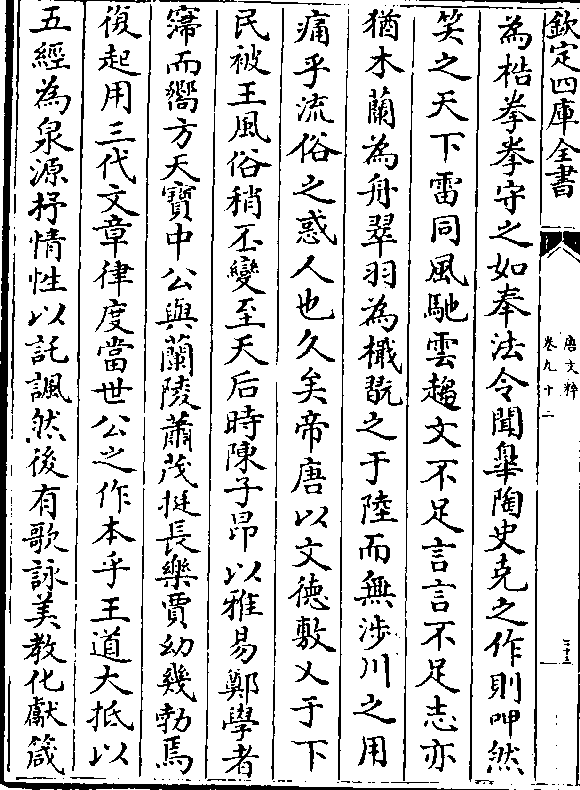 欽定四庫全書
唐文粹
卷九十二
為梏拳拳守之如奉法令聞臯陶史克之作則呷然
笑之天下雷同風馳雲趨文不足言言不足志亦
猶木蘭為舟翠羽為檝翫之于陸而無涉川之用
痛乎流俗之惑人也久矣帝唐以文德敷乂于下
民被王風俗稍丕變至天后時陳子昂以雅易鄭學者
寖而嚮方天寶中公與蘭陵蕭茂挺長樂賈幼幾勃焉
復起用三代文章律度當世公之作本乎王道大抵以
五經為泉源抒情性以託諷然後有歌詠美教化獻箴